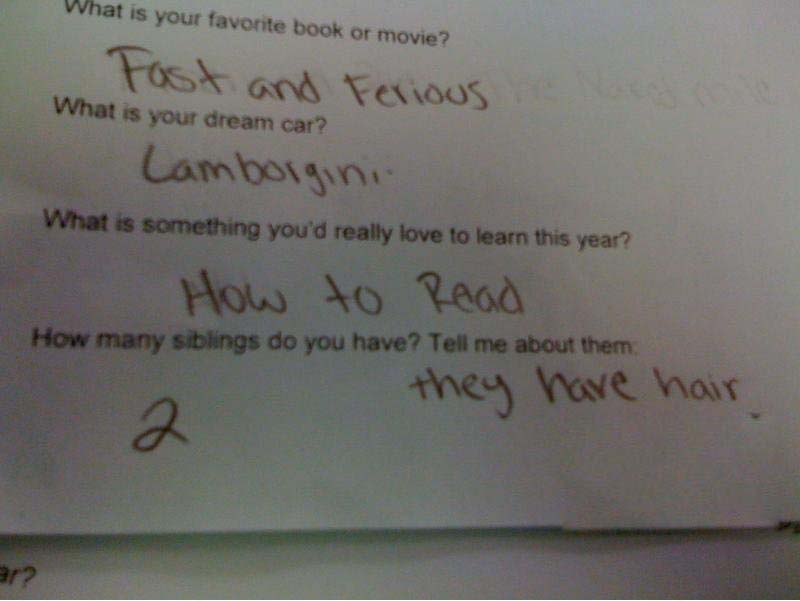 What is your favorite book or movie?
Fast and Ferious
What is your dream car?
Lamborgini.
What is something you'd really love to learn this year?
How to Read
How many siblings do you have? Tell me about them:
they have hair.
2
ar?